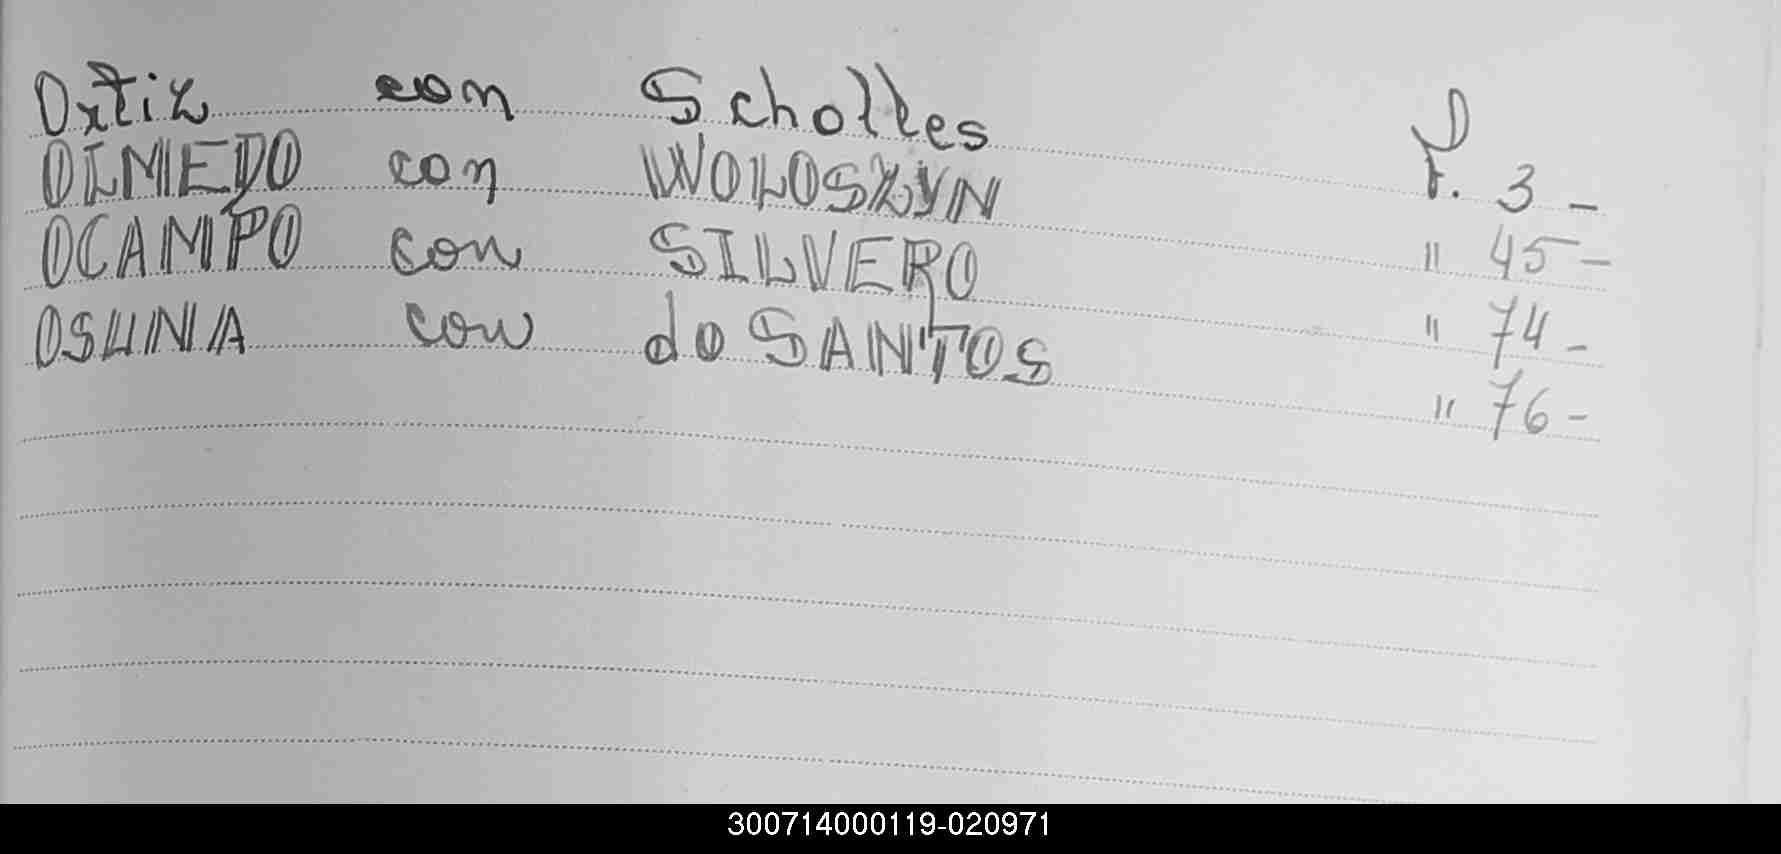 Ortiz con Scholles F. 3 -
OLMEDO con WOLOSZYN " 45 -
OCAMPO con SILVERO " 74 -
OSUNA con do SANTOS " 76 -
300714000119-020971